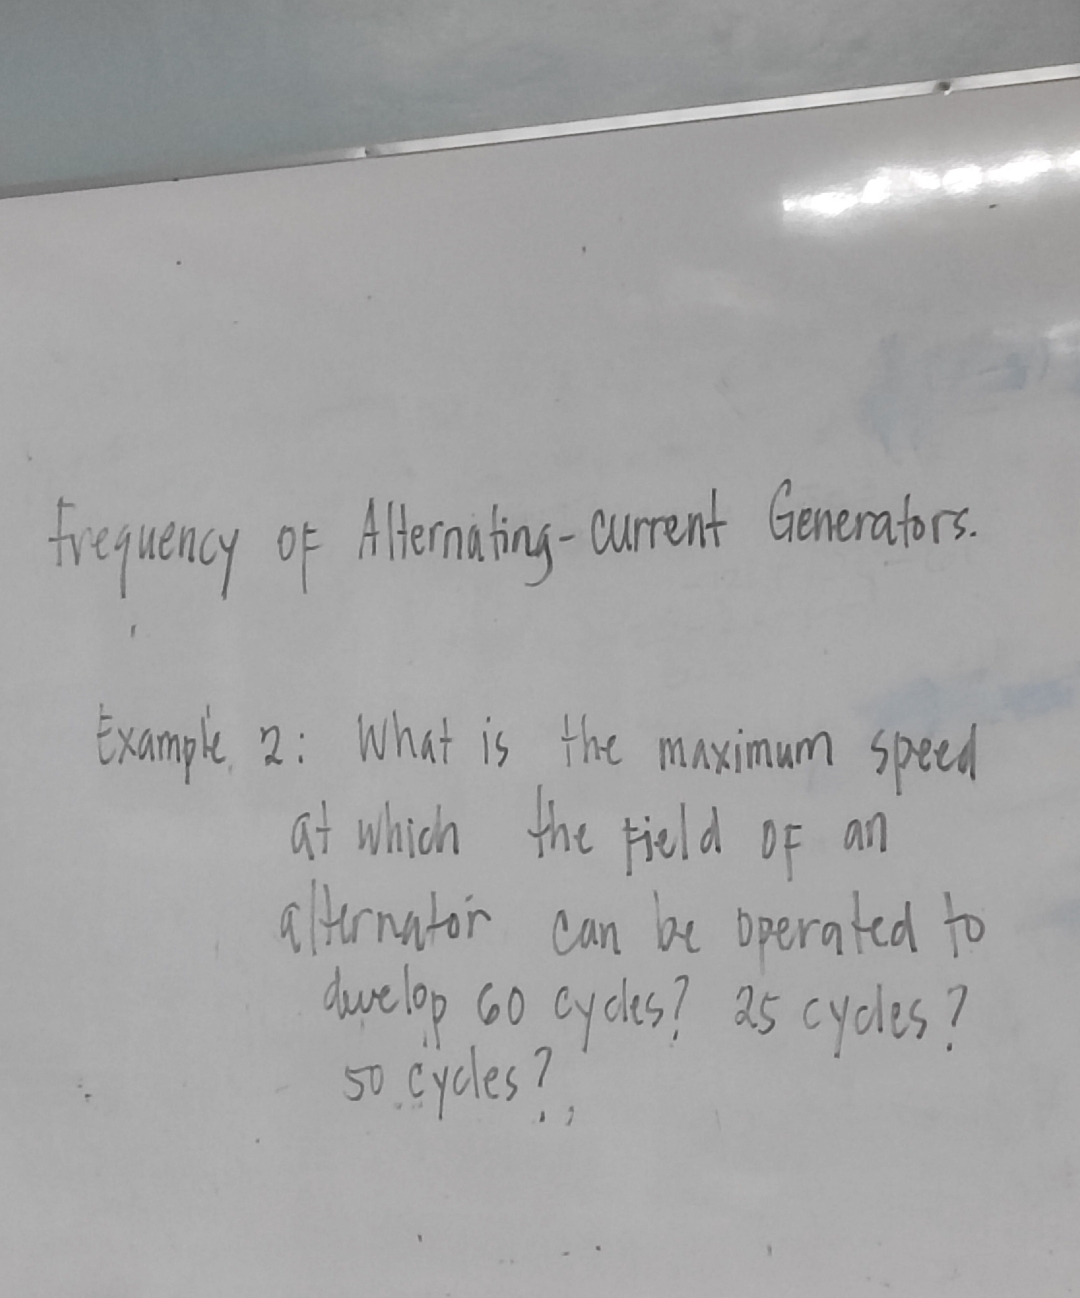 Frequency of Alternating-current Generators.
Example 2: What is the maximum speed
at which the field of an
alternator can be operated to
develop 60 cycles? 25 cycles?
50 cycles?